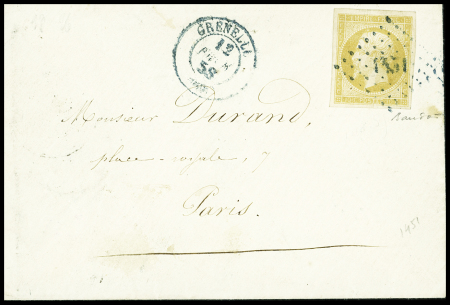 GRENELLE
12
58
1451
Monsieur Durand,
place royale, 7
Paris.
1451